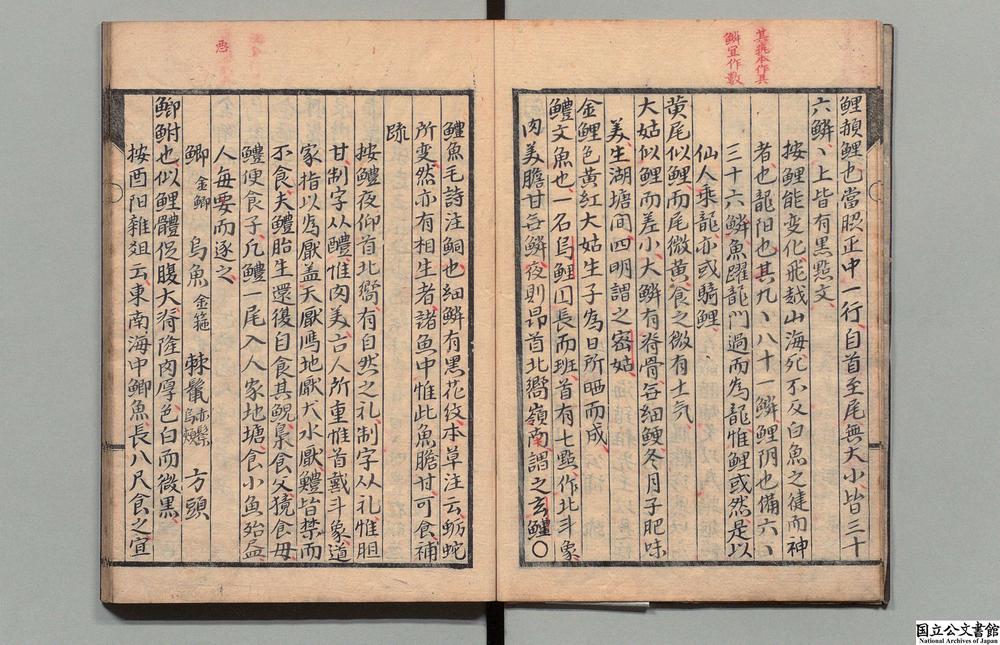 其抗本作具
鱗宜作数
鯉赬鯉也當脇正中一行自首至尾無大小皆三十
六鱗丶上皆有黒㸃文
按鯉能变化飛越山海死不反白魚之徤而神
者也龍阳也其九丶八十一鱗鯉阴也備六丶
三十六鱗魚躍龍門過而為龍惟鯉或然是以
仙人乘龍亦或騎鯉
黄尾似鯉而尾微黄食之微有土气
大姑似鯉而差小大鱗有脊骨每細鯁冬月子肥味
美生湖塘间四明謂之密姑
金鯉色黄紅大姑生子為日所晒而成
鱧文魚也一名烏鯉囙長而班首有七㸃作北斗象
肉美膽甘每鱗夜則昂首北嚮嶺南謂之玄鱧〇
鱧魚毛詩注鲖也細鱗有黒花紋本草注云蛎蛇
所变然亦有相生者諸鱼中惟此魚膽甘可食補
疏
按鱧夜仰首北嚮有自然之礼制字从礼惟胆
甘制字从醴惟肉美古人所重惟首戴斗象道
家指以為厭盖天厭鴈地厭犬水厭鱧皆禁而
不食夫鱧胎生還復自食其鯢梟食父獍食母
鱧便食子凡鱧一尾入人家地塘食小魚殆盡
人每要而逐之
鯽 金鯽 烏魚 金箍 棘鬣 赤鬃 烏頰 方頭
鯽鮒也似鯉體促腹大脊隆肉厚色白而微黒
按酉阳雜爼云東南海中鯽魚長八尺食之宜
国立公文書館
National Archives of Japan